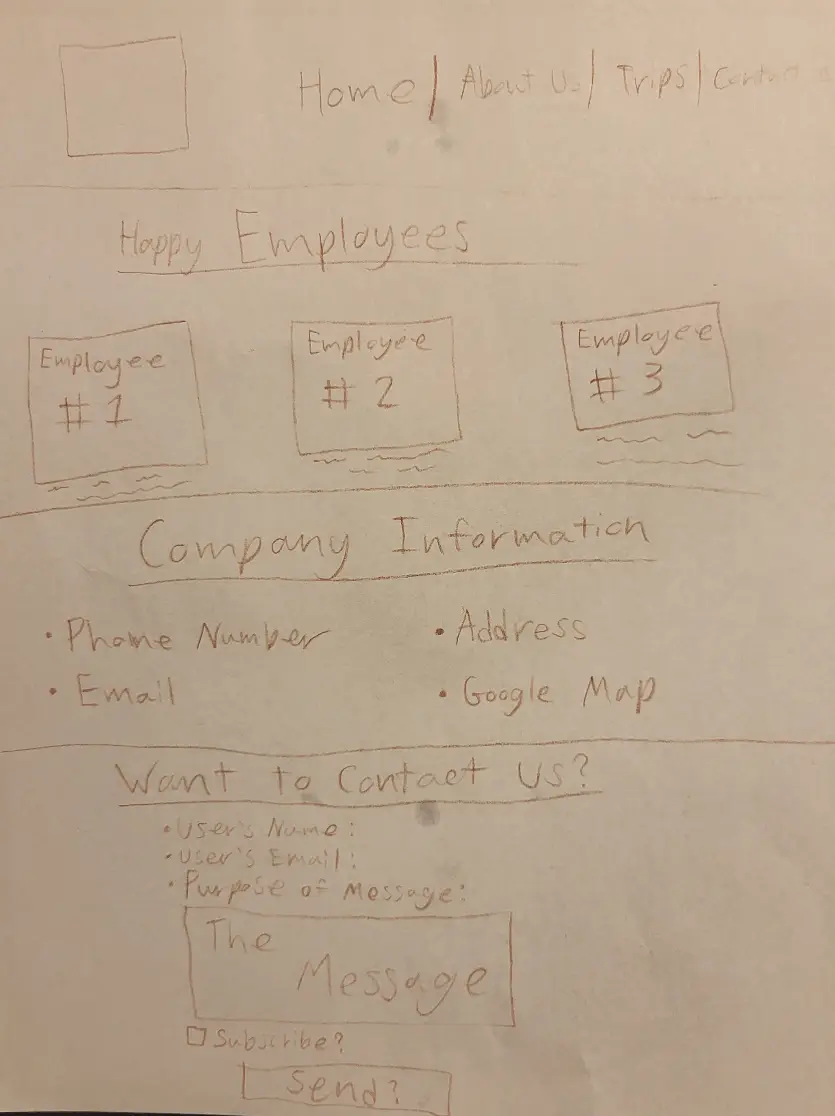 Home | About Us | Trips | Contact
Happy Employees
Employee
# 1
Employee
# 2
Employee
# 3
Company Information
• Phone Number
• Address
• Email
• Google Map
Want to Contact Us?
• User's Name:
• User's Email:
• Purpose of Message:
The
Message
Subscribe?
Send?